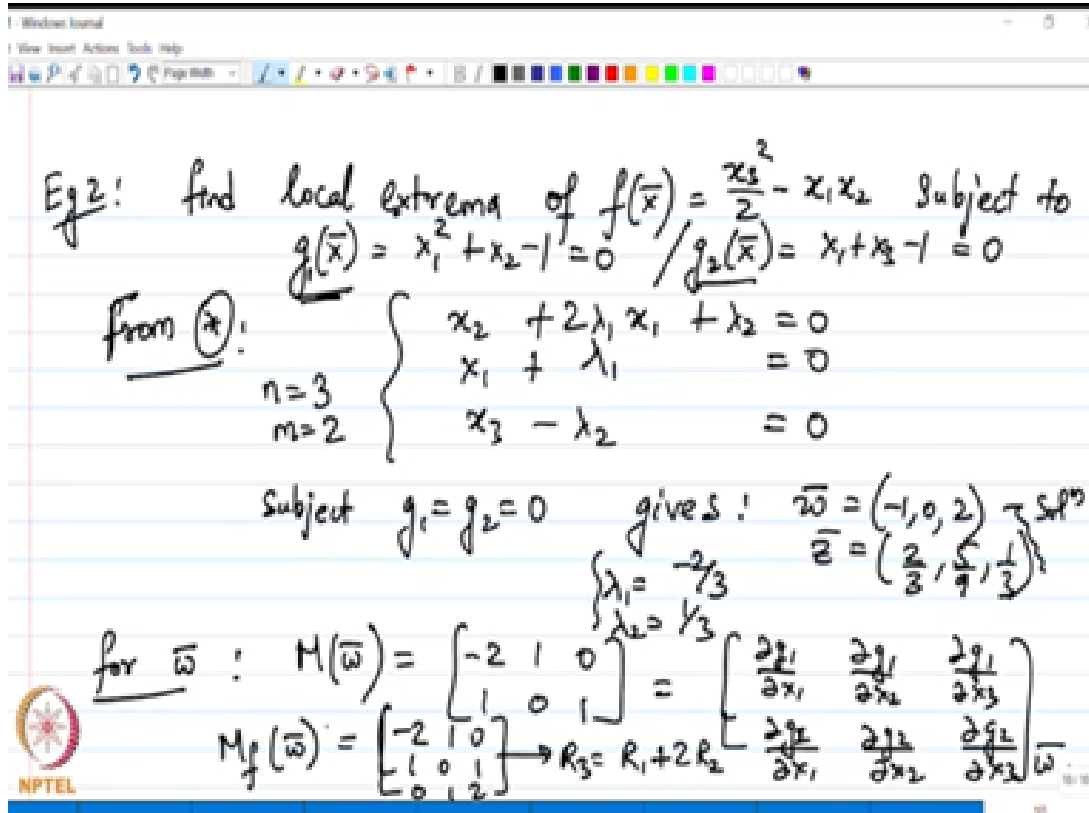 Windows Journal
View Insert Actions Tools Help
Page Width
Eg 2: find local extrema of f(x̄) = x₃²/2 - x₁x₂ Subject to
g₁(x̄) = x₁² + x₂ - 1 = 0 / g₂(x̄) = x₁ + x₃ - 1 = 0
from (*):
n = 3
m = 2
x₂ + 2λ₁x₁ + λ₂ = 0
x₁ + λ₁ = 0
x₃ - λ₂ = 0
Subject g₁ = g₂ = 0 gives: w̄ = (-1, 0, 2) → Solⁿ
z̄ = (2/3, 5/9, 1/3)
{λ₁ = -2/3
λ₂ = 1/3
for w̄ : M(w̄) = [-2 1 0; 1 0 1] = [∂g₁/∂x₁ ∂g₁/∂x₂ ∂g₁/∂x₃; ∂g₂/∂x₁ ∂g₂/∂x₂ ∂g₂/∂x₃] w̄
M_f(w̄) = [-2 1 0; 1 0 1; 0 1 2] → R₃ = R₁ + 2R₂
NPTEL